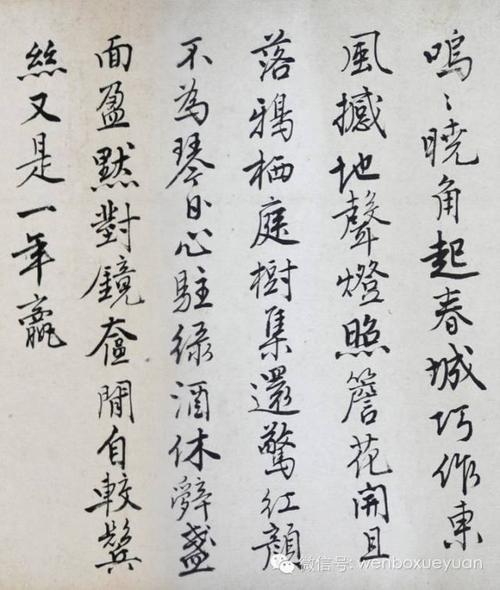 嗚〻曉角起春城巧作東
風撼地聲燈照簷花開且
落鴉栖庭樹集還驚紅顏
不為琴日心駐綠酒休辭盞
面盈默對鏡奩閒自較鬢
絲又是一年贏
微信号: wenboxueyuan